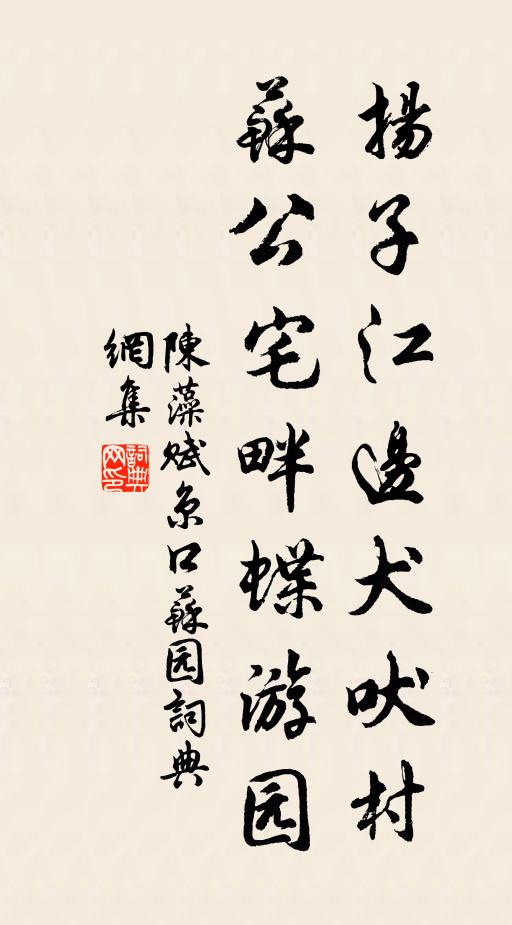 揚子江邊犬吠村
蘇公宅畔蝶游园
陳藻賦京口蘇园詞典
網集
詞典
网印